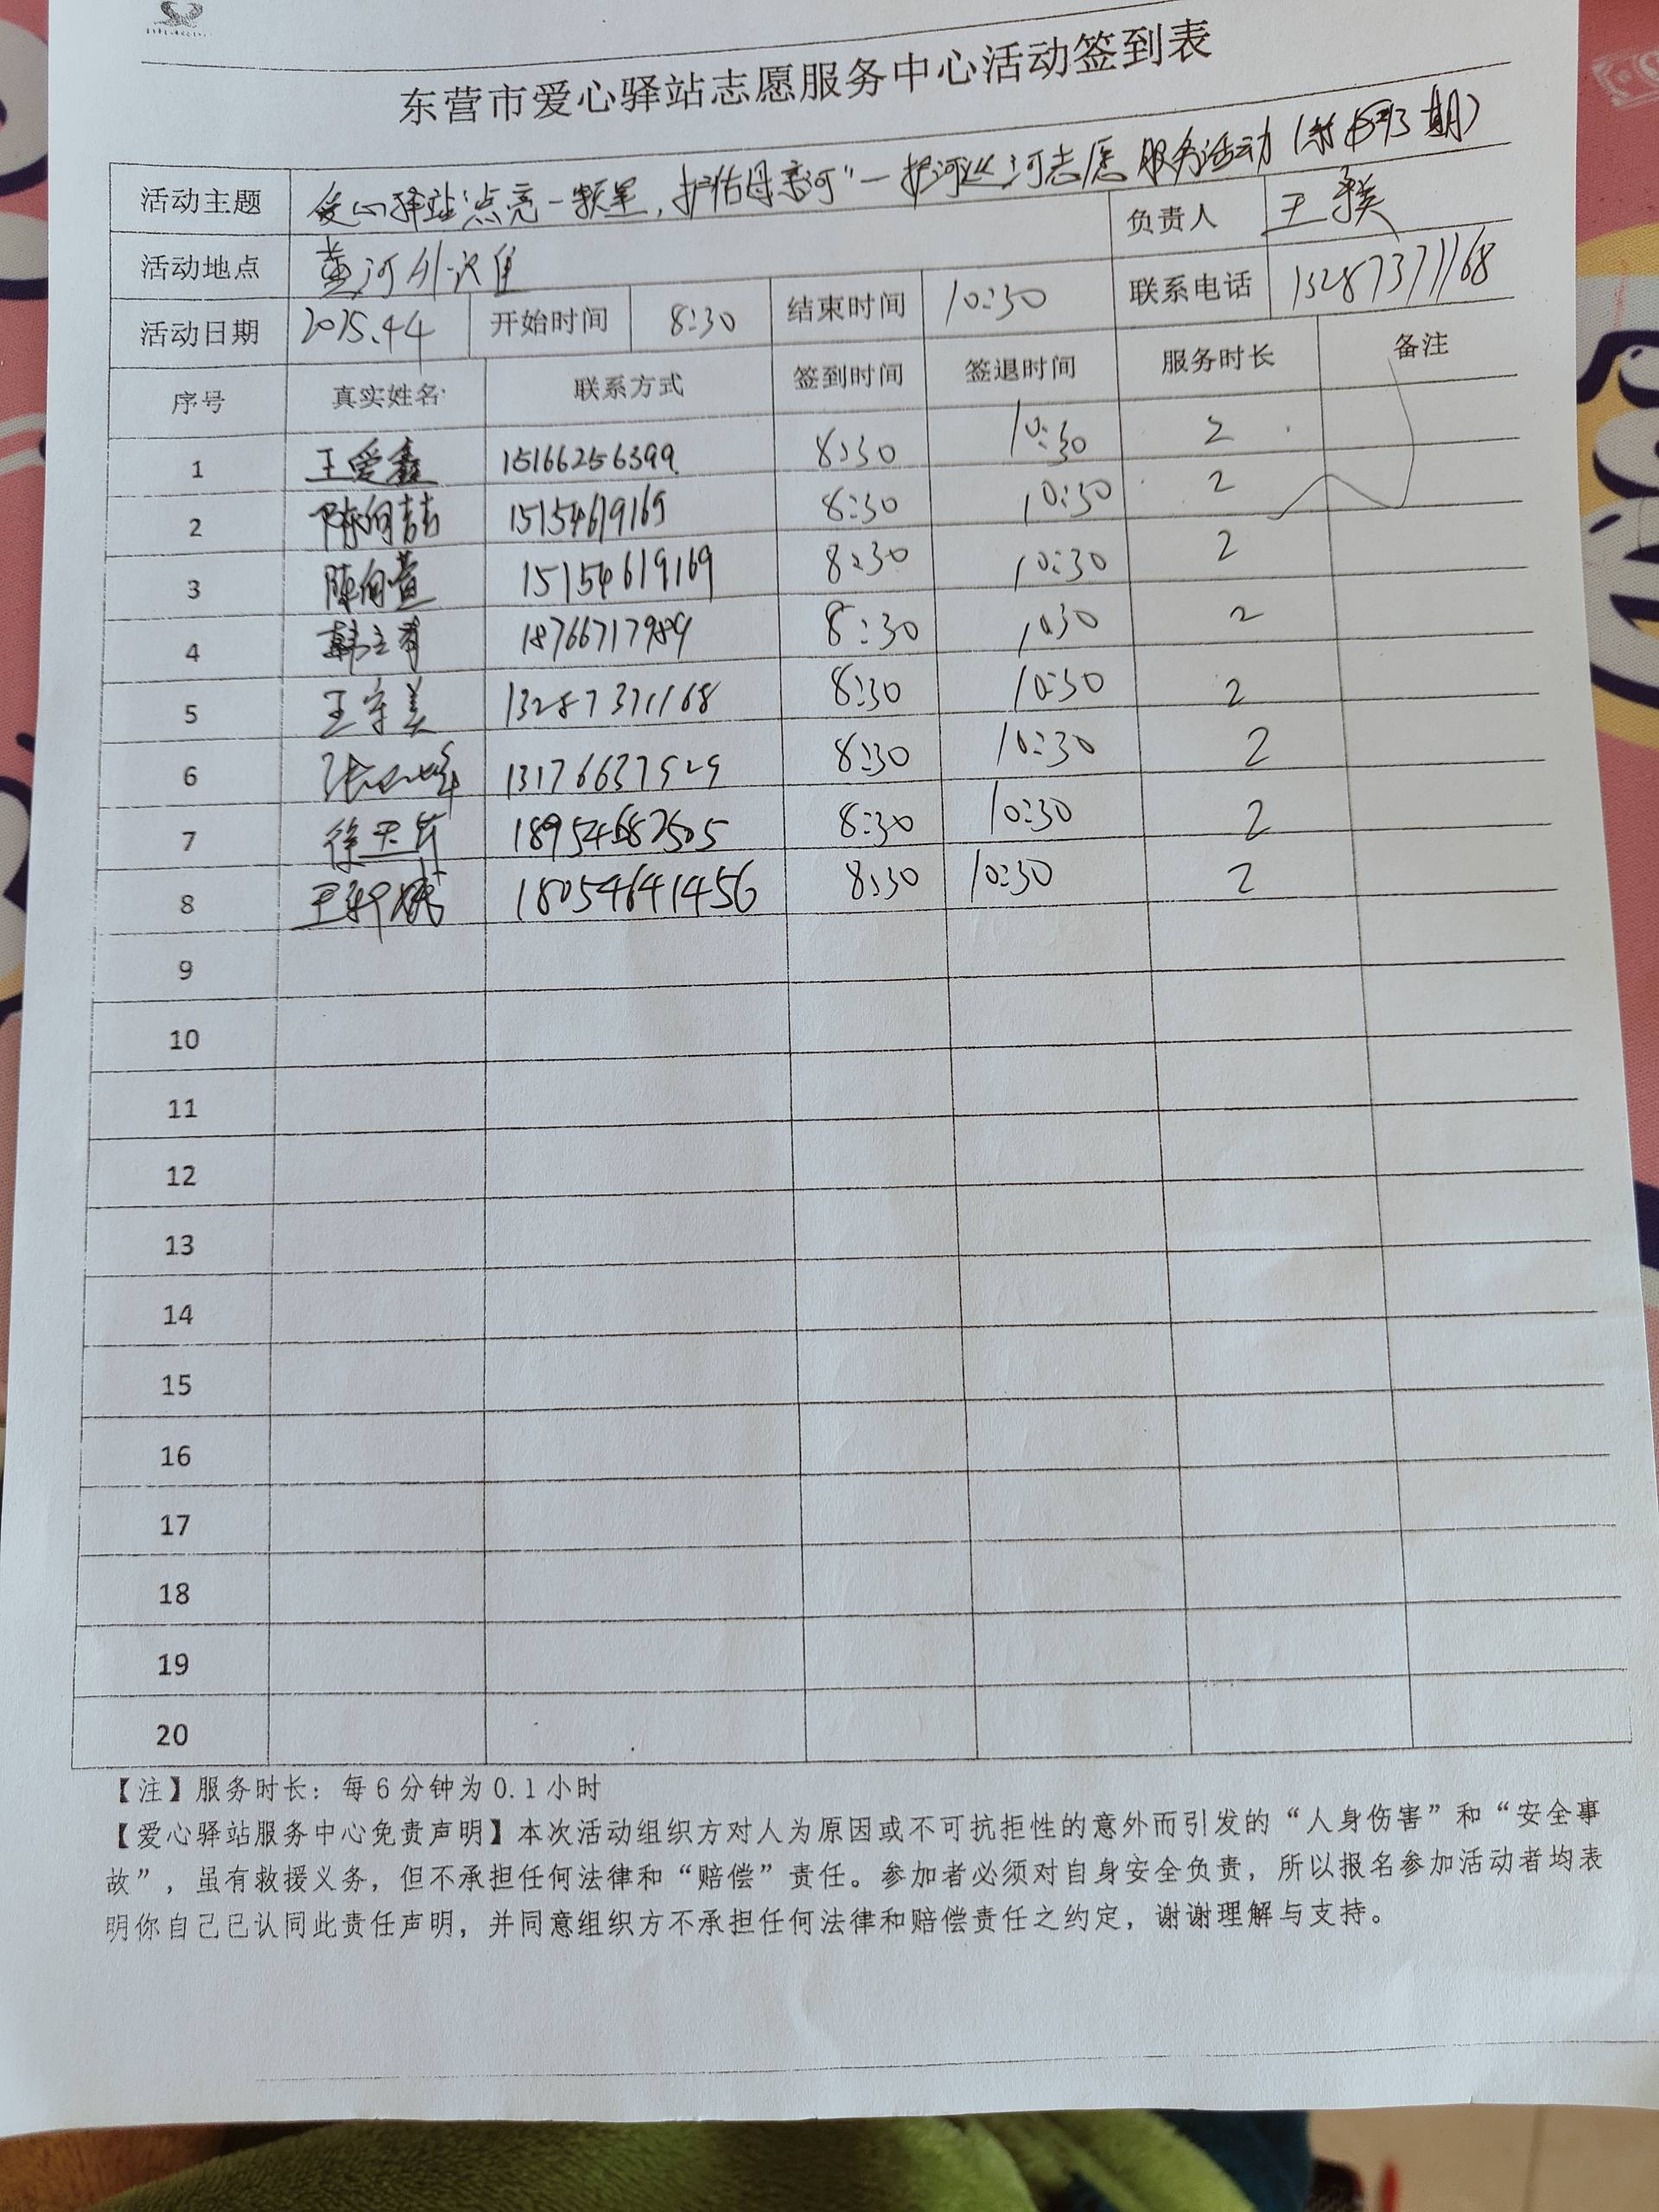 东营市爱心驿站志愿服务中心活动签到表
活动主题 爱心驿站点亮一颗星,护佑母亲河"一护河巡河志愿服务活动(第 期)
活动地点 黄河 负责人 王
活动日期 2025.4.4 开始时间 8:30 结束时间 10:30 联系电话 13287371168
序号 真实姓名 联系方式 签到时间 签退时间 服务时长 备注
1 王爱鑫 15166256399 8:30 10:30 2
2 陈向喆 15154619169 8:30 10:30 2
3 陈向萱 15154619169 8:30 10:30 2
4 韩立 18766717989 8:30 10:30 2
5 王守美 13287371168 8:30 10:30 2
6 张 13176637529 8:30 10:30 2
7 徐天 18954682505 8:30 10:30 2
8 王 18054641456 8:30 10:30 2
9
10
11
12
13
14
15
16
17
18
19
20
【注】服务时长:每6分钟为0.1小时
【爱心驿站服务中心免责声明】本次活动组织方对人为原因或不可抗拒性的意外而引发的“人身伤害”和“安全事
故”,虽有救援义务,但不承担任何法律和“赔偿”责任。参加者必须对自身安全负责,所以报名参加活动者均表
明你自己已认同此责任声明,并同意组织方不承担任何法律和赔偿责任之约定,谢谢理解与支持。